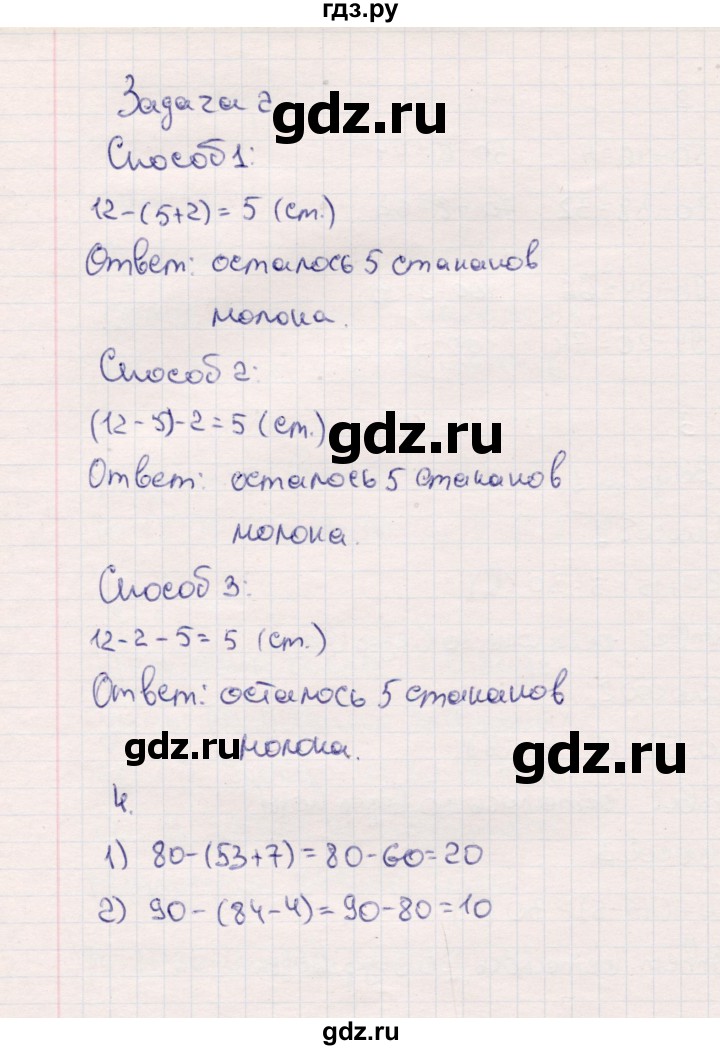 гдз.ру
Задача 2
gdz.ru
Способ 1:
12-(5+2)=5 (ст.)
Ответ: осталось 5 стаканов
молока.
Способ 2:
(12-5)-2=5 (ст.)
gdz.ru
Ответ: осталось 5 стаканов
молока.
Способ 3:
12-2-5=5 (ст.)
Ответ: осталось 5 стаканов
gdz.ru молока.
gdz.ru
4.
1) 80-(53+7)=80-60=20
2) 90-(84-4)=90-80=10
gdz.ru